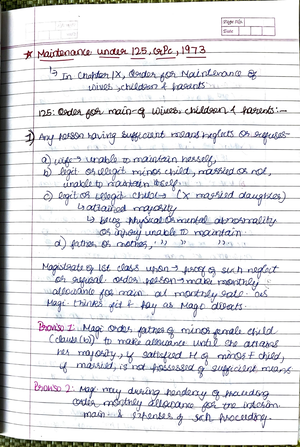 Page No.
Date
★ Maintenance under 125, CrPc, 1973
↳ In Chapter IX, Order for Maintenance of
wives, children & parents
125: Order for main- of wives, children & parents:-
1) Any person having sufficient means neglects or refuses-
a) wife → unable to maintain herself,
b) legit or illegit minor child, married or not,
unable to maintain itself
c) legit or illegit child → (x married daughter)
↳ attained majority
↳ being physical or mental abnormality
or injury unable to maintain
d) father or mother, " " "
Magistrate of Ist class upon → proof of such neglect
or refusal order person → make monthly
allowance for main at monthly rate as
Magi thinks fit & pay as Magi directs.
Proviso 1: Magi order father of minor female child
(clause (b)) to make allowance until she attains
her majority, if satisfied H of minor f child,
if married, is not possessed of sufficient means
Proviso 2: Magi may during pendency of proceeding
order monthly allowance for the interim
main- & expenses of such proceeding.